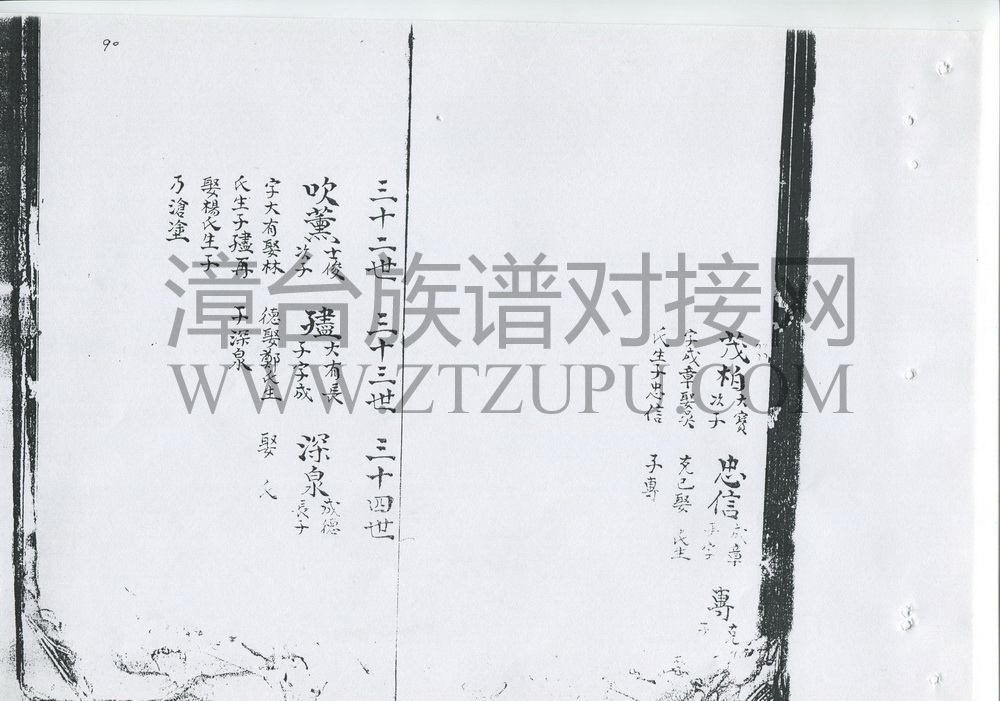 90
茂柏
大寶
次子
字成章娶吳
氏生子忠信
忠信
成章
字
克己娶 氏生
子專
專
克
子
三十二世 三十三世 三十四世
吹薰
士俊
次子
字大有娶林
氏生子𤩽再
娶楊氏生子
乃滄塗
大有長
子字成
德娶鄭氏生
子深泉
深泉
成德
長子
娶 氏
漳台族谱对接网
WWW.ZTZUPU.COM